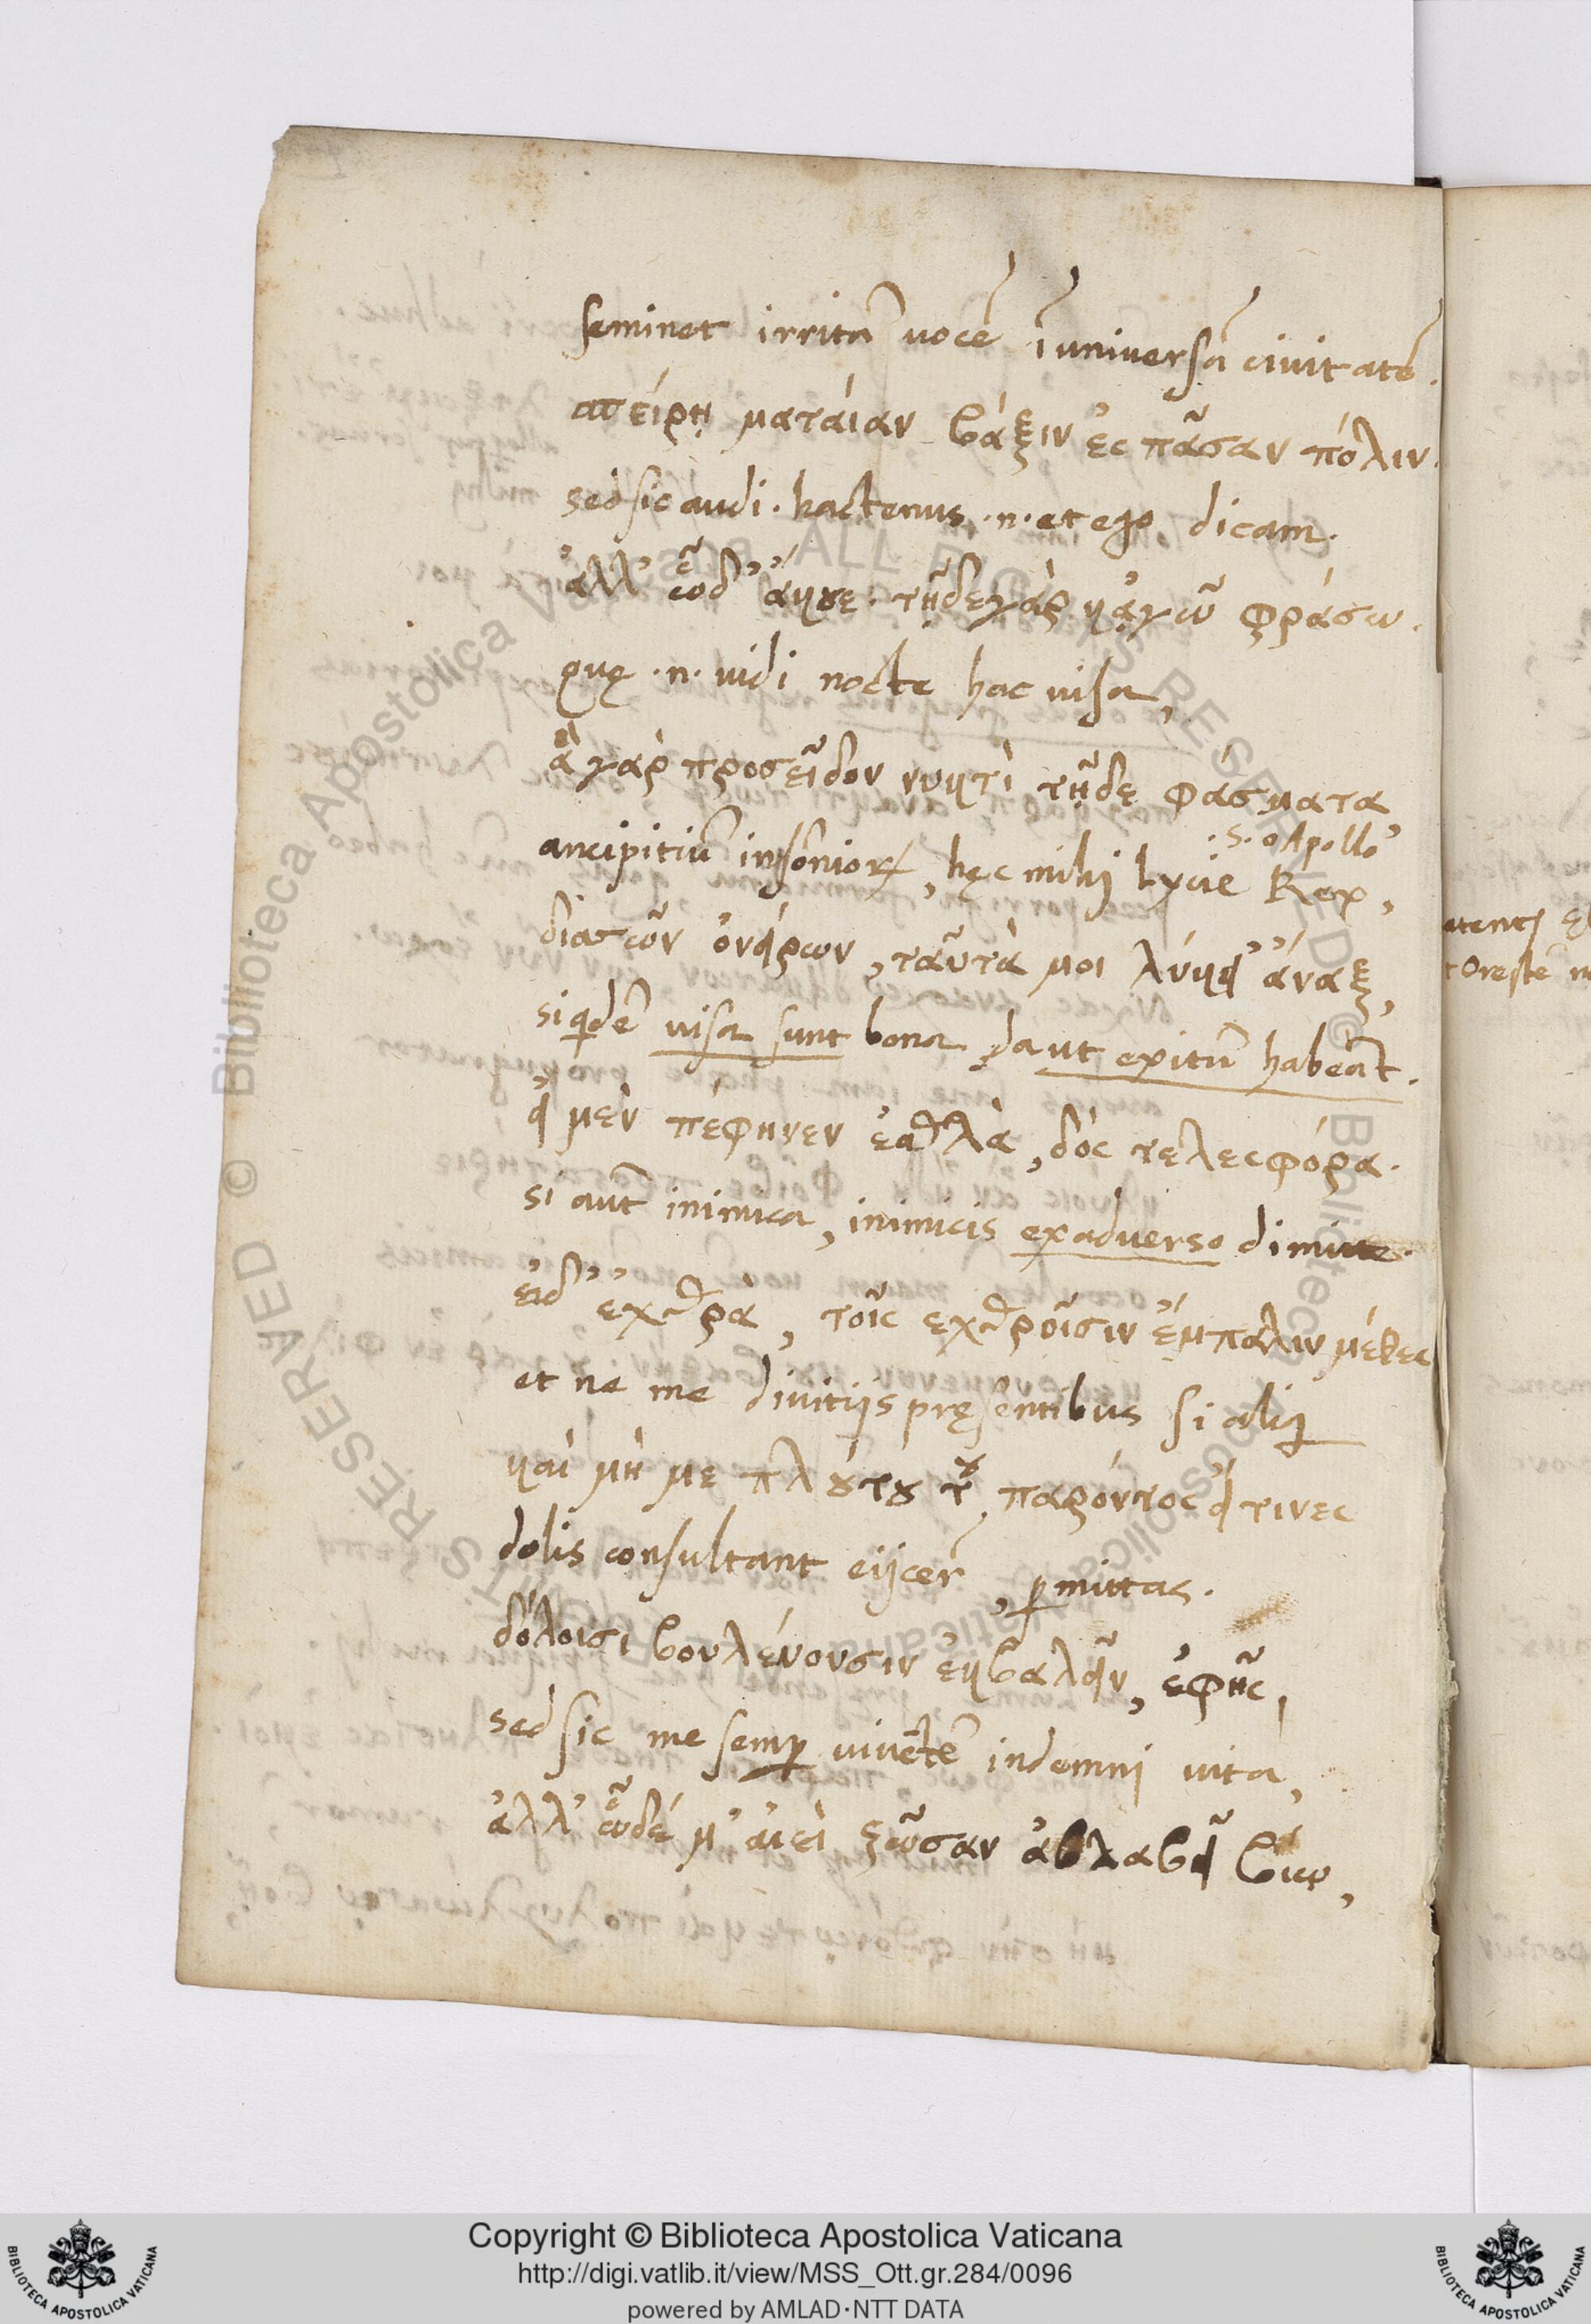 seminet irritā uocē ī uniuersā ciuitatē.
σπείρῃ ματάιαν βάξιν ἐς πᾶσαν πόλιν.
sed sic audi. hactenus .n. et ego dicam.
ἀλλ' ὧδ' ἄκουε. τῇδε γὰρ κᾀγὼ φράσω.
quę .n. uidi nocte hac uisa,
ἃ γὰρ προσεῖδον νυκτὶ τῇδε φάσματα
.s. o Apollo
ancipitiū insōniorꝝ, hęc mihi Lycie Rex,
δισσῶν ὀνείρων, ταῦτά μοι λύκει' ἄναξ,
siqdē uisa sunt bona da ut exitū habeāt.
εἰ μὲν πέφηνεν ἐσθλὰ, δὸς τελεσφόρα.
si aut inimica, inimicis exaduerso dimitte.
εἰ δ' ἐχθρὰ, τοῖς ἐχθροῖσιν ἔμπαλιν μέθες
et ne me diuitijs pręsentibus si aliq
καὶ μή με πλούτου τοῦ παρόντος εἴ τινες
dolis consultant eijcere, ꝑmittas.
δόλοισι βουλεύουσιν ἐκβαλεῖν, ἐφῇς,
sed sic me semꝑ uiuētē indemni uita,
ἀλλ' ὧδέ μ' ἀιεὶ ζῶσαν ἀβλαβεῖ βίῳ,
t Orestē
Copyright © Biblioteca Apostolica Vaticana
http://digi.vatlib.it/view/MSS_Ott.gr.284/0096
powered by AMLAD·NTT DATA
BIBLIOTECA APOSTOLICA VATICANA
BIBLIOTECA APOSTOLICA VATICANA